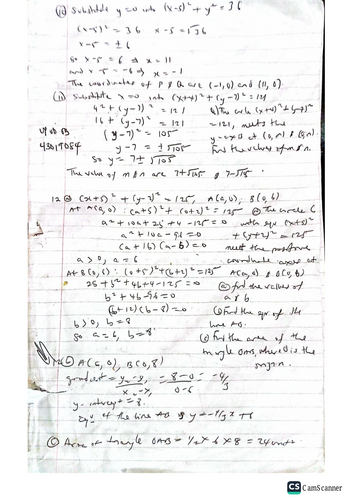 (ii) Substitute y=0 into (x-5)² + y² = 36
(x-5)² = 36    x-5 = √36
x-5 = ±6
so x-5 = 6 ⇒ x = 11
and x-5 = -6 ⇒ x = -1
The coordinates of P & Q are (-1,0) and (11,0).
(11) Substitute x=0 into (x+4)² + (y-7)² = 121
4² + (y-7)² = 121
16 + (y-7)² = 121
(y-7)² = 105
y-7 = ±√105
so y = 7±√105
The value of m & n are 7+√105 & 7-√105.
= 121, meets the
y-axis at (0,m) & (0,n)
Find the values of m & n.
12 (a) (x+5)² + (y-7)² = 125, A(a,0), B(0,b)
At A(a,0): (a+5)² + (0+2)² = 125
a² + 10a + 25 + 4 - 125 = 0
a² + 10a - 96 = 0
(a+16)(a-6) = 0
a > 0, a = 6
At B(0,b): (0+5)² + (b+2)² = 125
25 + b² + 4b + 4 - 125 = 0
b² + 4b - 96 = 0
(b+12)(b-8) = 0
b > 0, b = 8
so a = 6, b = 8.
The circle C
with eqn (x+5)²
+ (y+2)² = 125
meet the positive
coordinate axes at
A(a,0) & B(0,b)
(a) find the values of
a & b
(b) Find the eqn of the
line AB.
(c) find the area of the
triangle OAB, where O is the
origin.
(b) A(6,0), B(0,8)
gradient = y₂-y₁ / x₂-x₁ = 8-0 / 0-6 = -4/3
y-intercept = 8.
Eqn of the line AB is y = -4/3x + 8
(c) Area of triangle OAB = 1/2 x 6 x 8 = 24 units
CS CamScanner